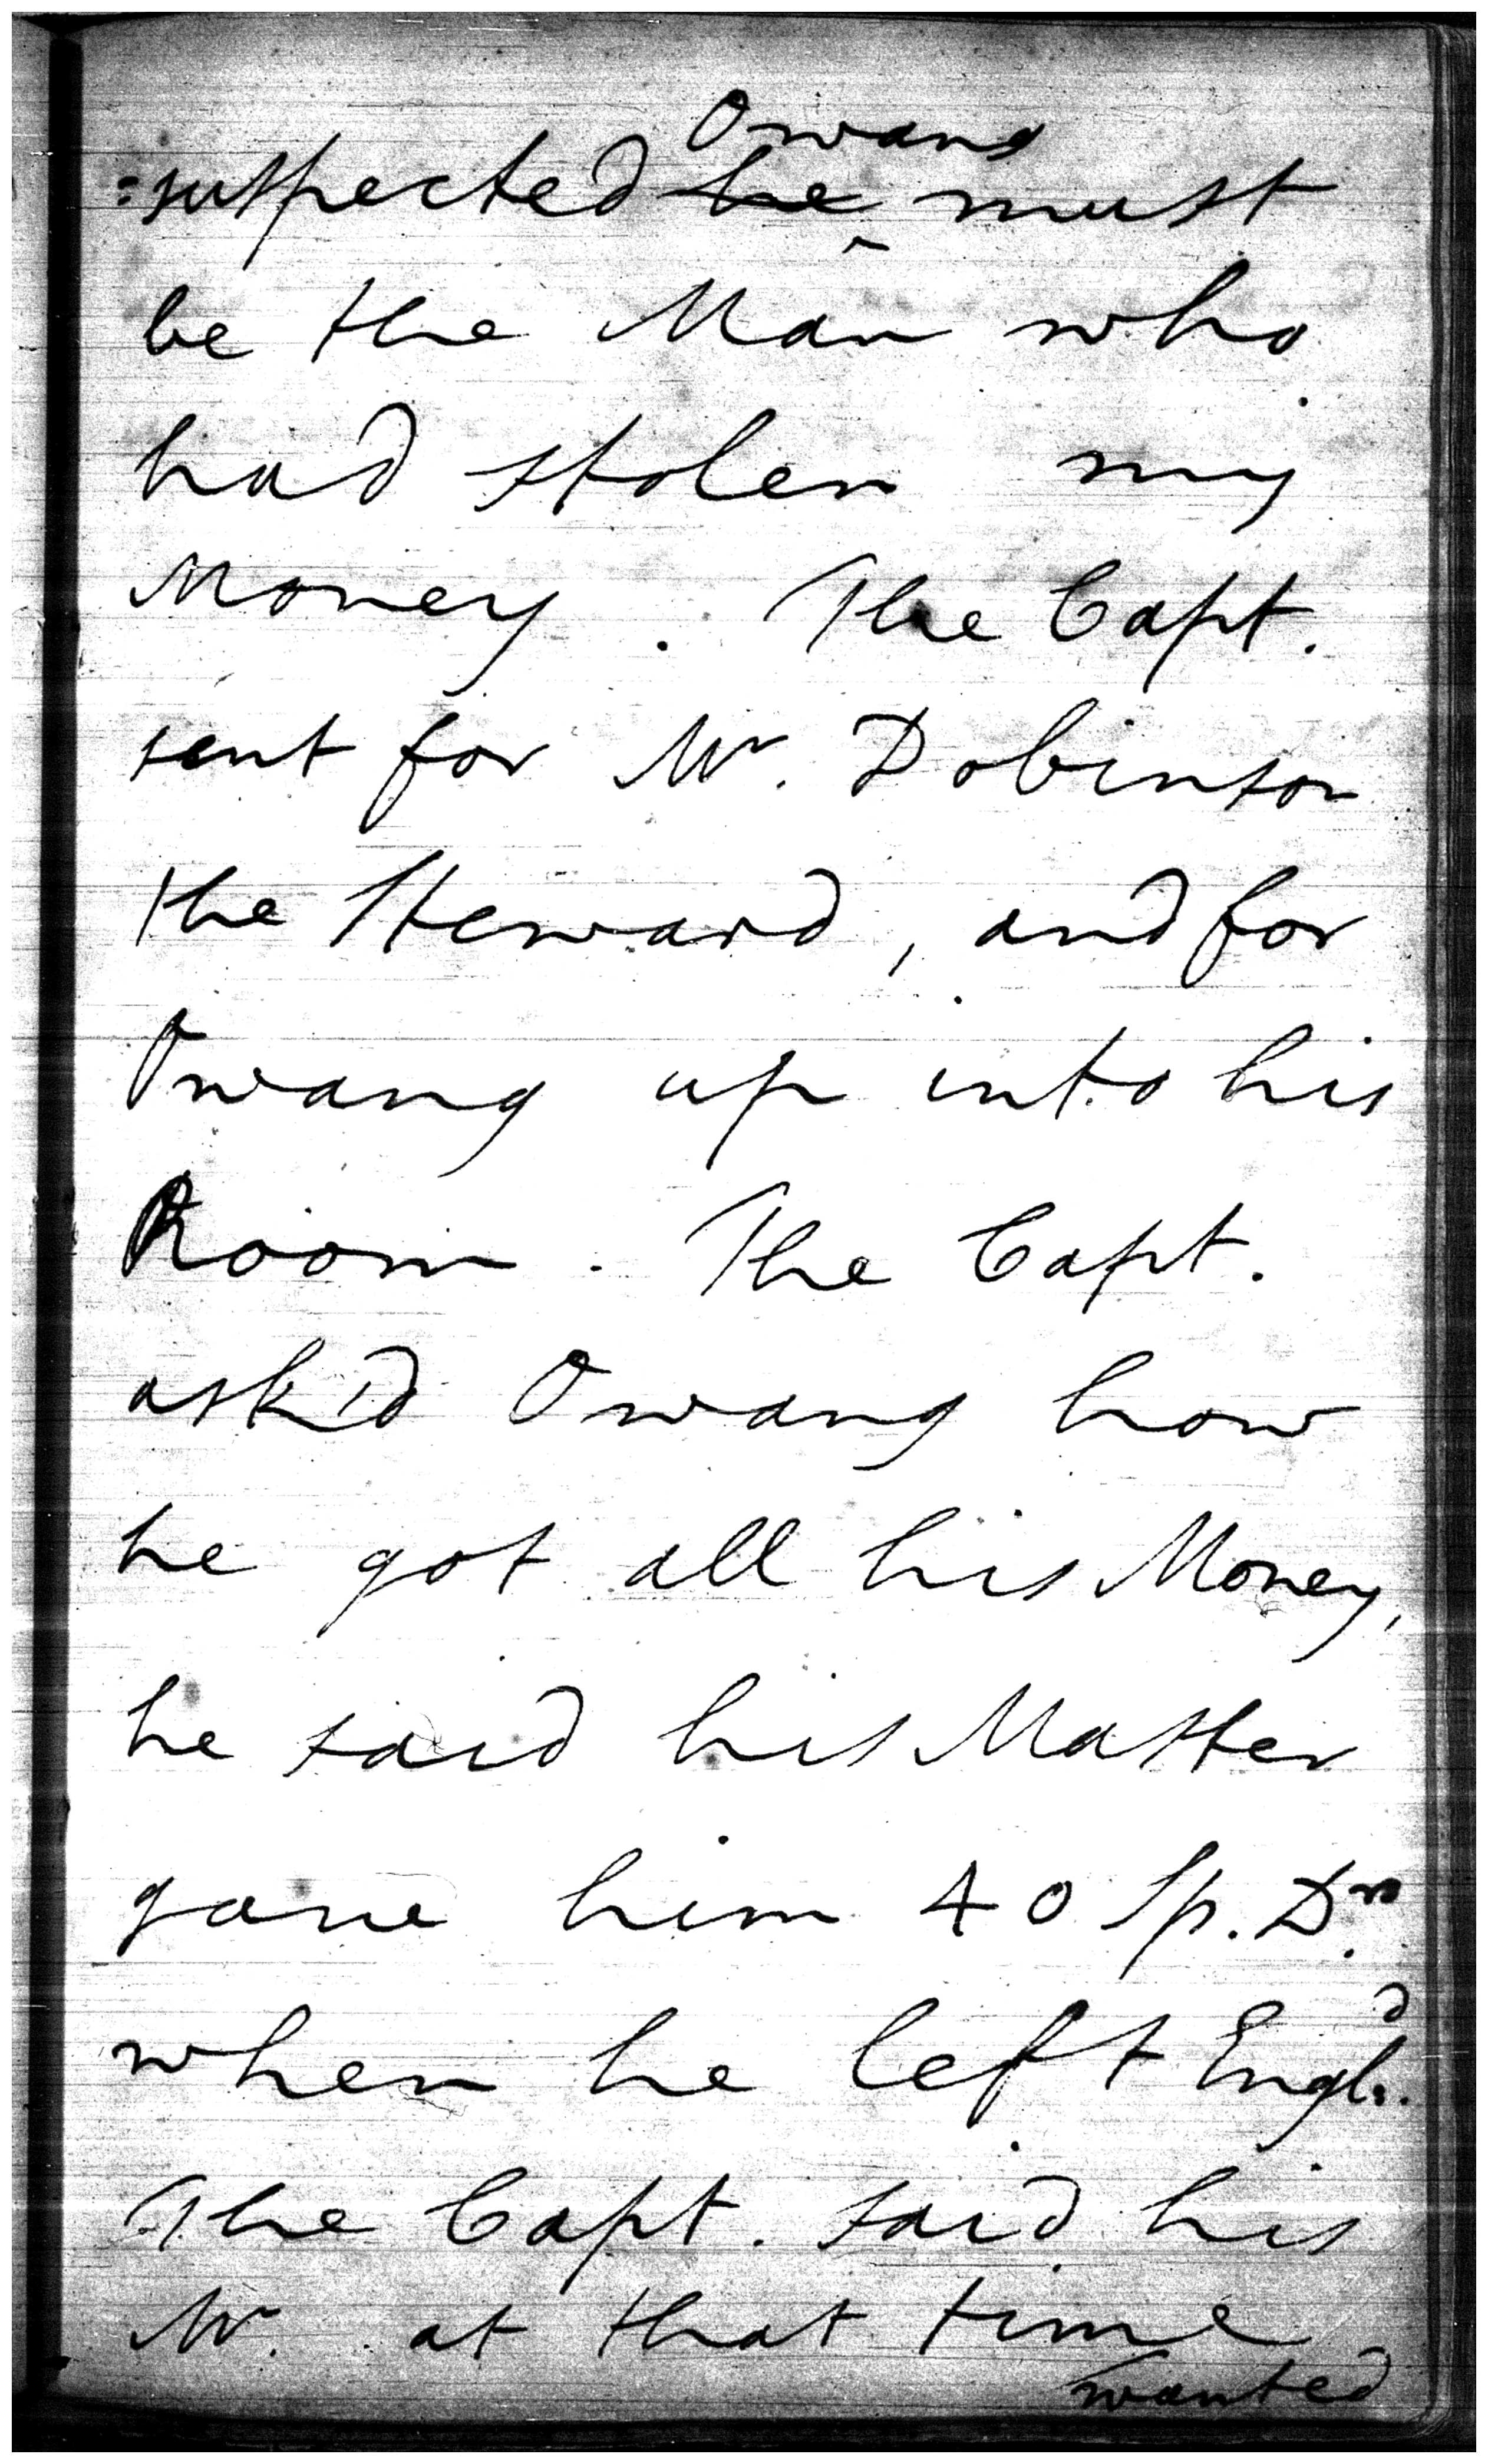 Owang
=suspected he must
be the Man who
had stolen my
Money. The Capt.
sent for Mr. Dobinson
the Steward, and for
Owang up into his
Room. The Capt.
ask'd Owang how
he got all his Money,
he said his Master
gave him 40 Sp. Drs.
when he left Engld.
The Capt. said his
Mr. at that time
wanted